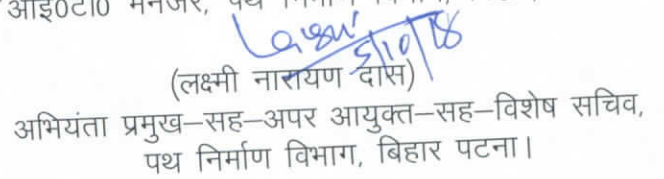 आई०टी० मैनेजर, पथ निर्माण
5/10/18
(लक्ष्मी नारायण दास)
अभियंता प्रमुख–सह–अपर आयुक्त–सह–विशेष सचिव,
पथ निर्माण विभाग, बिहार पटना।